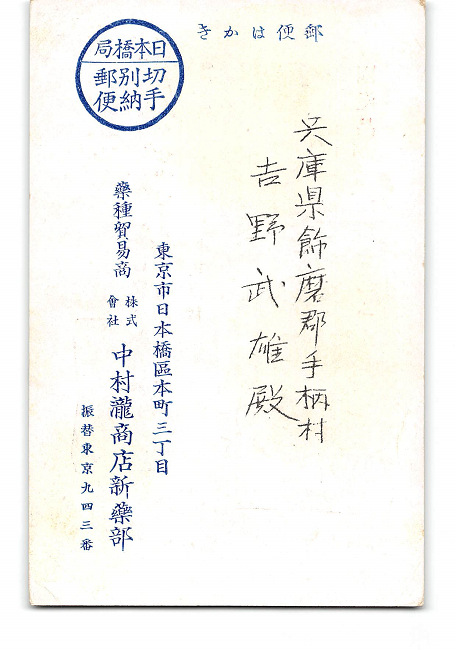 きかは便郵
局橋本日
郵別切
便納手
兵庫県飾磨郡手柄村
吉野武雄殿
東京市日本橋區本町三丁目
藥種貿易商
株式會社 中村瀧商店新藥部
振替東京九四三番